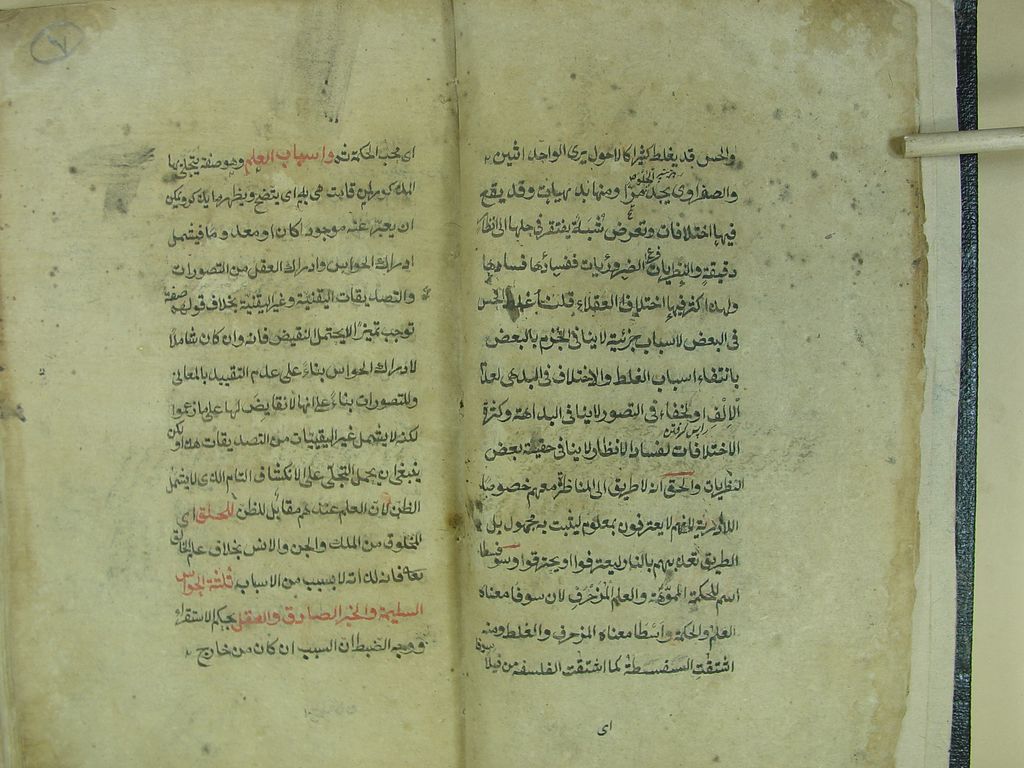 والحس قد يغلط كثيرا كالاحول يرى الواحد اثنين
والصفراوى يجد الحلو مرّا ومنها بديهيات وقد يقع
فيها اختلافات وتعرض شُبَهٌ يفتقر فى حلها الى انظار
دقيقة والنظريات فرع الضروريات ففسادها فسادها
ولهذا كثر فيها اختلاف العقلاء قلنا غلط الحس
فى البعض لاسباب جزئية لا ينافى الجزم بالبعض
بانتفاء اسباب الغلط والاختلاف فى البديهى لعدم
الالف او لخفاء فى التصور لا ينافى البداهة وكثرة
الاختلافات لفساد الانظار لا ينافى حقيقة بعض
النظريات والحق انه لا طريق الى المناظرة معهم خصوصا
اللاادرية لانهم لا يعترفون بمعلوم ليثبت به مجهول بل
الطريق تعذيبهم بالنار ليعترفوا او يحترقوا وسوفسطا
اسم للحكمة المموّهة والعلم المزخرف لان سوفا معناه
العلم والحكمة واسطا معناه المزخرف والغلط ومنه
اشتقت السفسطة كما اشتقت الفلسفه من فيلا سوفا
اى
٧
اى محب الحكمة ثم واسباب العلم وهو صفة يتجلى بها
المذكور لمن قامت هى به اى يتضح ويظهر ما يذكر ويمكن
ان يعبر عنه موجودا كان او معدوما فيشمل
ادراك الحواس وادراك العقل من التصورات
والتصديقات اليقينية وغير اليقينية بخلاف قولهم صفة
توجب تميزا لا يحتمل النقيض فانه وان كان شاملا
لادراك الحواس بناء على عدم التقييد بالمعانى
وللتصورات بناء على انها لا نقايض لها على ما زعموا
لكنه لا يشمل غير اليقينيات من التصديقات هذا ولكن
ينبغى ان يحمل التجلى على الانكشاف التام الذى لا يشمل
الظن لان العلم عندهم مقابل للظن للخلق اى
المخلوق من الملك والجن والانس بخلاف علم الخالق
تعالى فانه لذاته لا بسبب من الاسباب ثلثة الحواس
السليمة والخبر الصادق والعقل بحكم الاستقراء
ووجه الضبط ان السبب ان كان من خارج